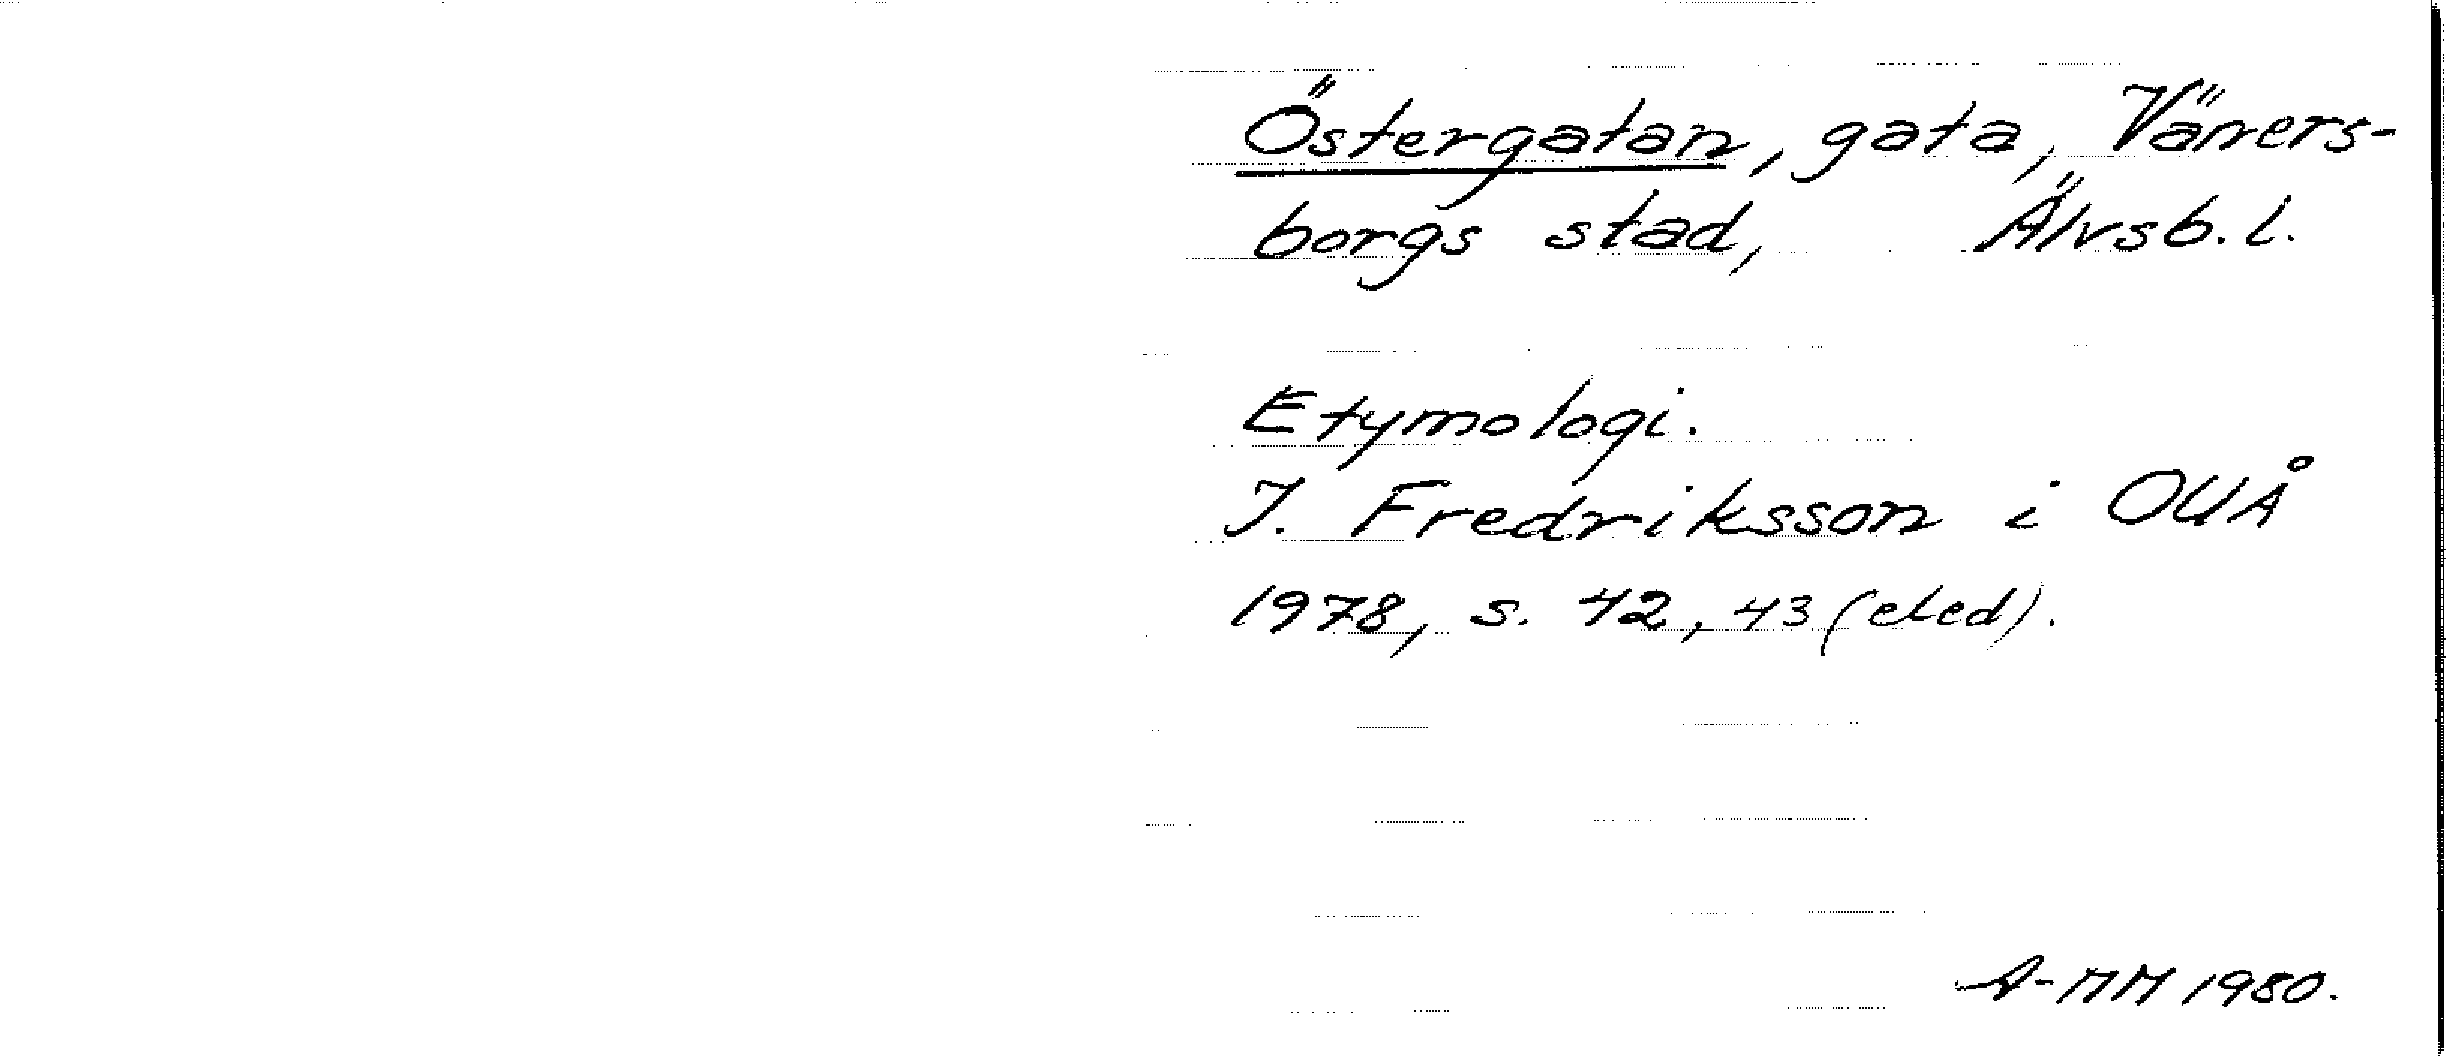 Östergatan, gata, Väners-
borgs stad, Älvsb. l.
Etymologi.
I. Fredriksson i OUÅ
1978, s. 42, 43 (eled).
A-MM 1980.